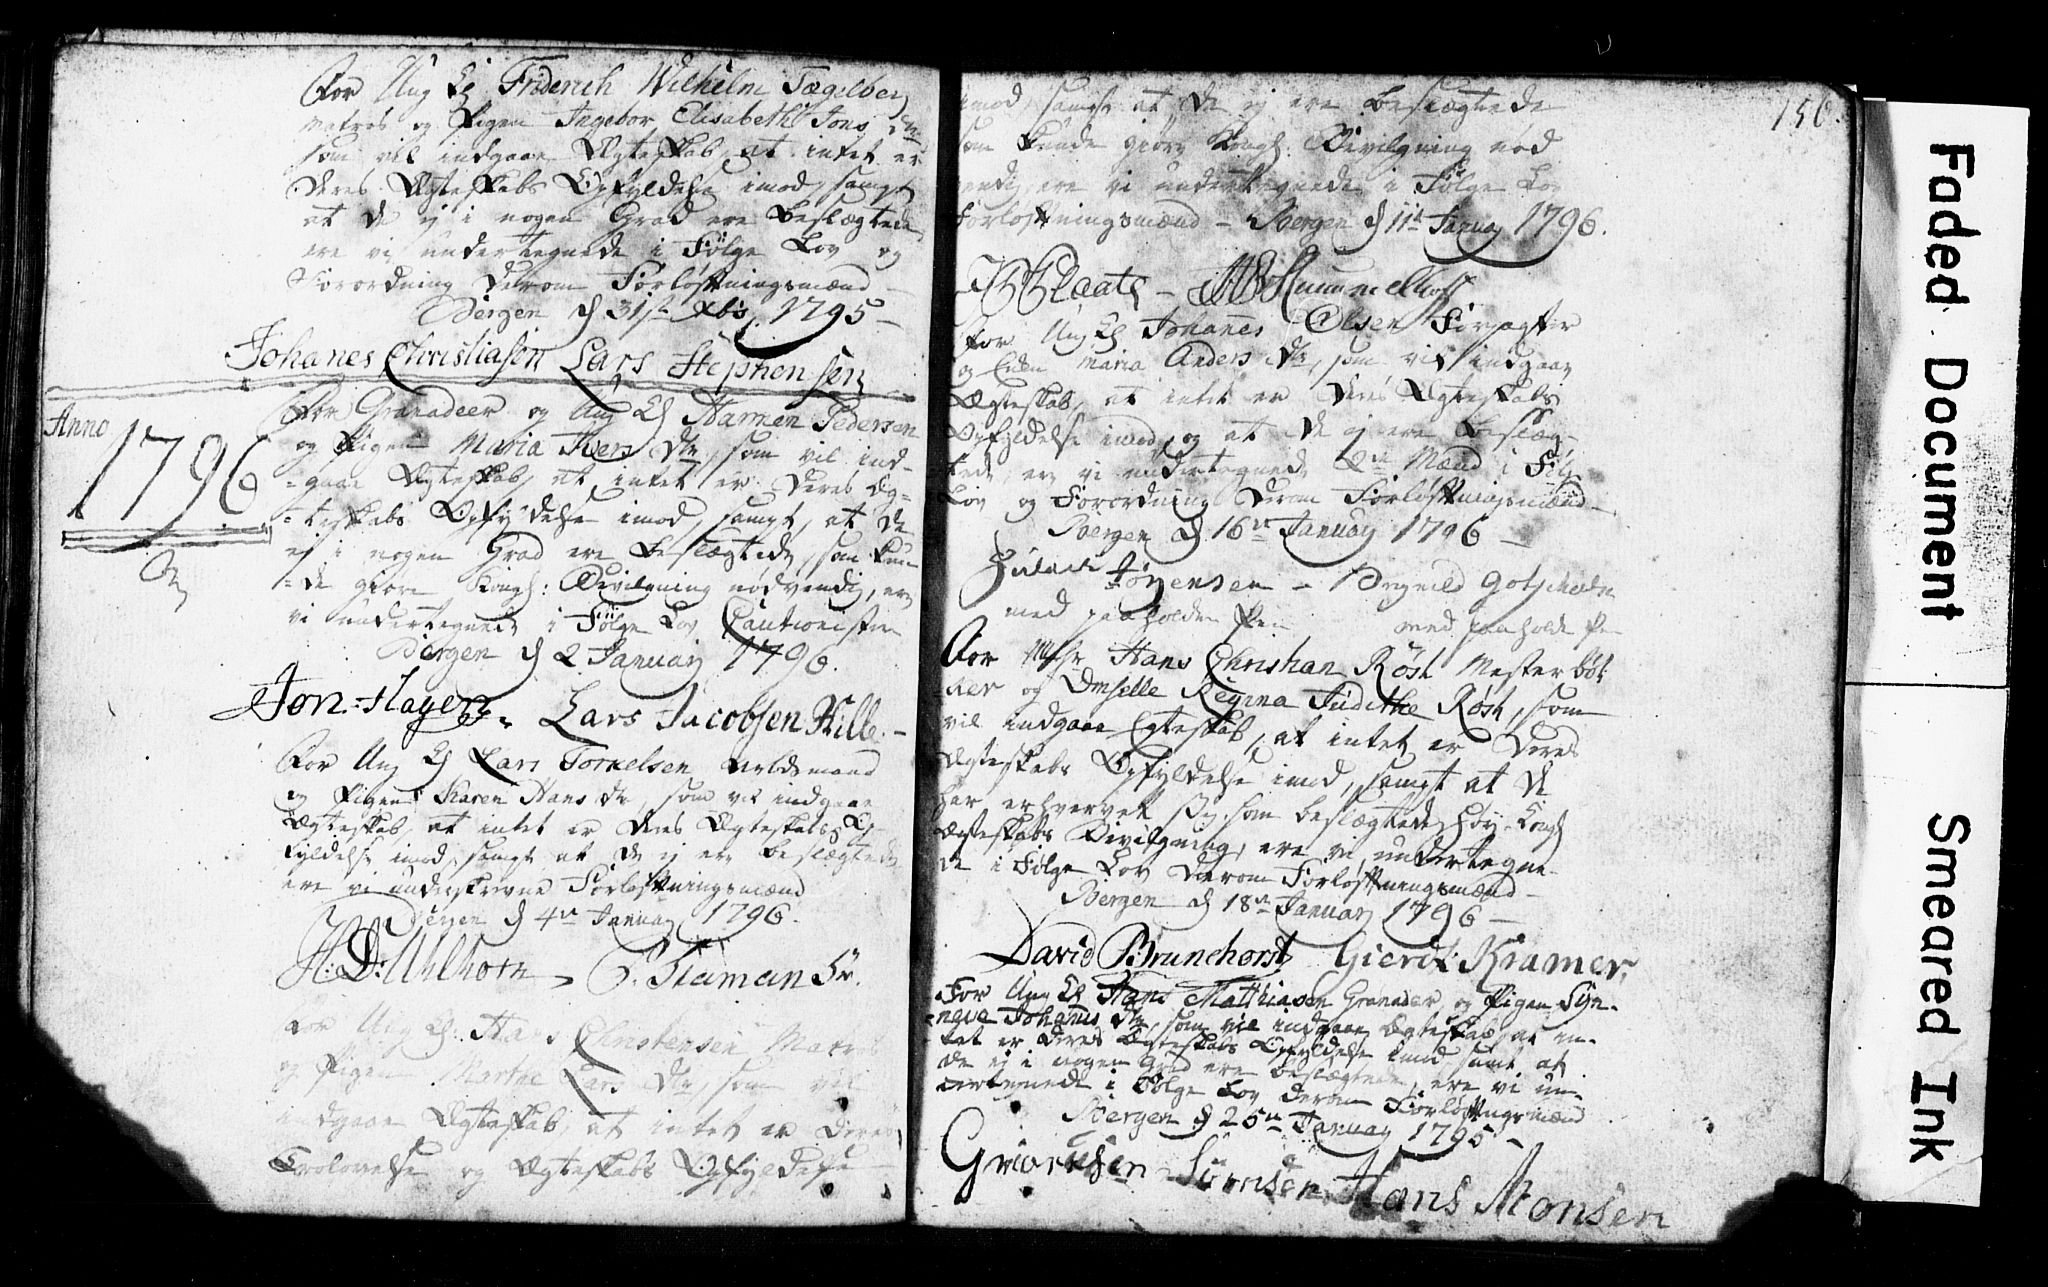 For Ung K: Friderich Wilhelm Tægelberg
Matros og Pigen Ingebor Elisabeth Jons Dtr
som vil indgaae Ægteskab, at intet er
Deres Ægteskabs Opfyldelse imod, samt
at De ej i nogen Grad ere Beslægtede
ere vi undertegnede i Følge Lov og
Forordning Derom Forløftningsmænd
Bergen d 31te Xbr 1795
Johanes Christiasen Lars Stephensen
Anno
1796
For Granadeer og Ung K Harmen Pedersen
og Pigen Maria Ivers Dtr, som vil ind-
-gaae Ægteskab, at intet er Deres Æg-
-teskabs Opfyldelse imod, samt, at De
ej i nogen Grad ere Beslægtede, som kun-
-de giøre Kongl: Bevilgning nødvendig, ere
vi undertegnede i Følge Lov Cautionister
Bergen d 2 Januarij 1796.
Jon Hagen Lars Jacobsen Hille.
For Ung K Lars Torkelsen
og Pigen Karen Hans Dtr, som vil indgaae
Ægteskab, at intet er Deres Ægteskabs Op-
fyldelse imod, samt at De ej ere beslægtede,
ere vi underskrevne Forløftningsmænd
Bergen d 4de Januarij 1796.
H: D: Uhlhorn - Staman
For Ung K: Hans Christensen Matros
og Pigen Marthe Lars Dtr, som vil
indgaae Ægteskab, at intet er Deres
Trolovelse og Ægteskabs Opfyldelse
150.
imod, samt at De ej ere Beslægtede
som kunde giøre Kongl: Bevilgning nød
vendig, ere vi undertegnede i Følge Lov
Forløftningsmænd - Bergen d 11te Januarij 1796.
For Ung K Johannes Olsen
og Enken Maria Anders Dtr, som vil indgaae
Ægteskab, at intet er Deres Ægteskabs
Opfyldelse imod, og at De ej ere Beslæg-
tede, ere vi undertegnede 2de Mænd i Følge
Lov og Forordning Derom Forløftningsmænd
Bergen d. 16de Januarij 1796
Jørgensen -
med paaholden Pen med paaholden Pen
For Mstr Hans Christian Röst Mester bød
ker og Dmselle Regina Judithe Röst, som
vil indgaae Egteskab, at intet er Deres
Ægteskabs Opfyldelse imod, samt at De
har erhvervet sig som beslægtede Høy-Kongl
Ægteskabs Bevilgning, ere vi undertegne-
de i Følge Lov Derom Forløftningsmænd
Bergen d 18de Januarij 1796
David Brunchorst Gierdt Kramer,
For Ung K Hans Matthiasen Granader og Pigen Syn-
neve Johanis Dtr, som vil indgaae Ægteskab, at in-
tet er Deres Ægteskabs Opfyldelse imod samt at
de ej i nogen Grad ere beslægtede, ere vi un-
dertegnede i Følge Lov derom Forløftningsmænd
Bergen d 25de Januarij 1795
Hans Monsen
Faded Document
Smeared Ink